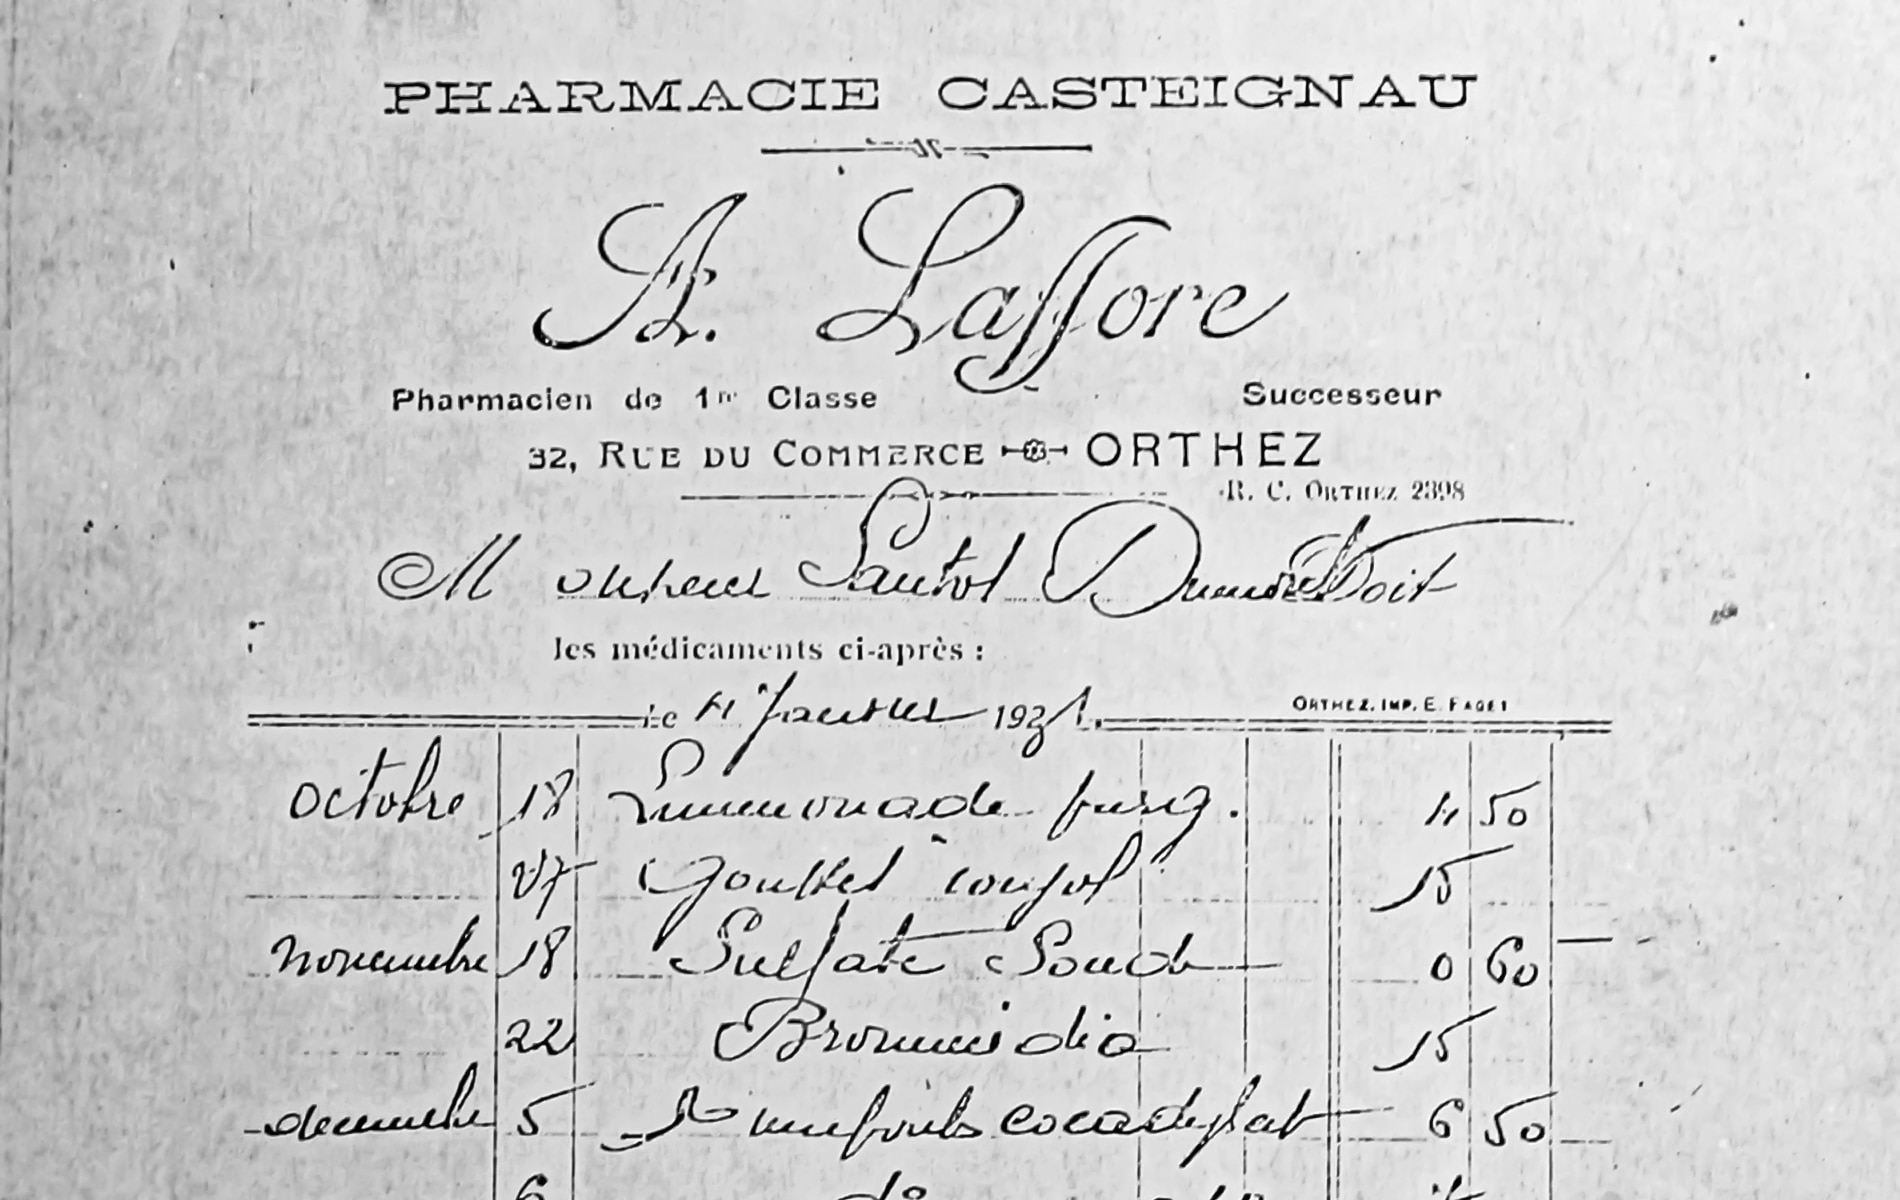 PHARMACIE CASTEIGNAU
A. Laffore
Pharmacien de 1re Classe Successeur
32, RUE DU COMMERCE ORTHEZ
R. C. ORTHEZ 2398
Monsieur Doit
les médicaments ci-après :
Le Janvier 193
ORTHEZ. IMP. E. FAGET
Octobre 18 Limmonade purg. 50
27 Gouttes 15
Novembre 18 Sulfate Soude 0 60
22 Bromidia 15
decembre 5 6 50
6